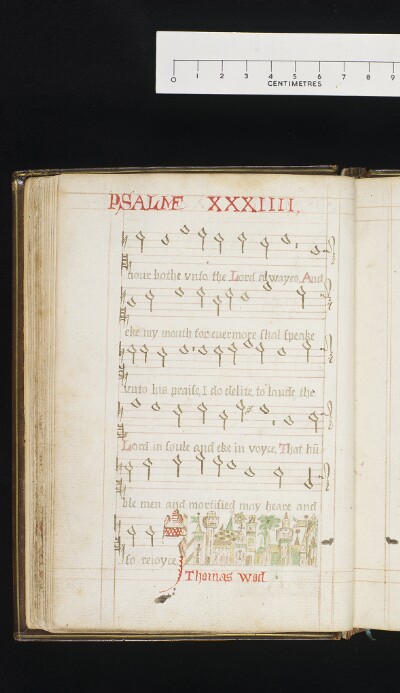 0 1 2 3 4 5 6 7 8 9
CENTIMETRES
PSALME XXXIIII.
honur bothe vnto the Lord alwayes, And
eke my mouth for euermore shal speake
vnto his praise, I do delite, to laude the
Lord in soule and eke in voyce, That hū
ble men and mortified may heare and
so reioyce
Thomas wod